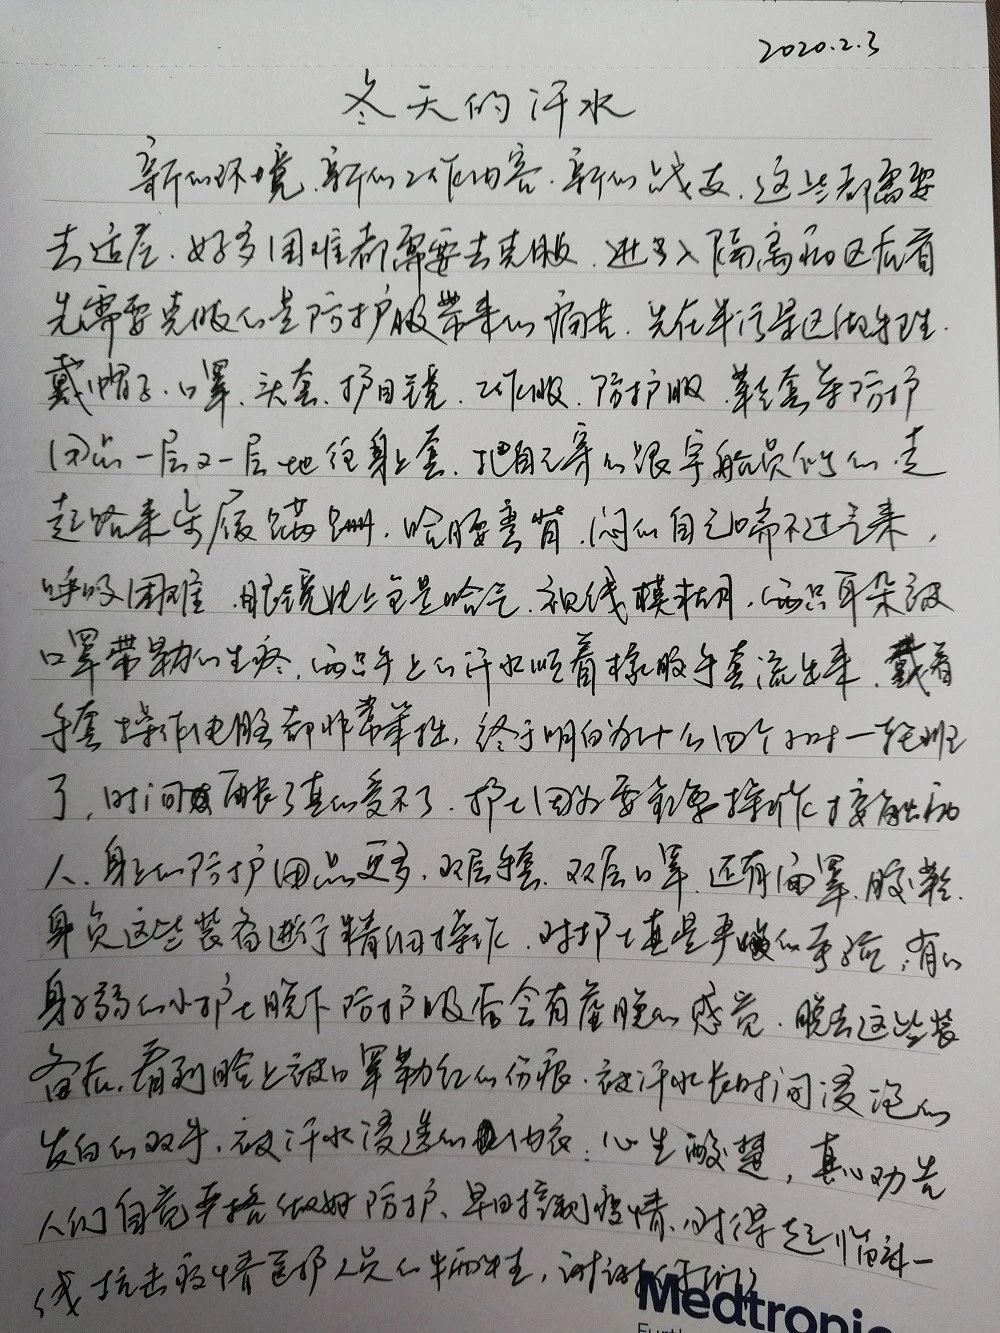 2020.2.3
冬天的汗水
新的环境、新的工作内容、新的战友、这些都需要
去适应、好多困难都需要去克服、进入隔离病区后首
先需要克服的是防护服带来的痛苦、先在半污染区做
戴帽子、口罩、头套、护目镜、工作服、防护服、鞋套等防护
用品一层又一层地往身上套、把自己穿的跟宇船员似的、走
起路来步履蹒跚、哈腰弯背、闷的自己喘不过气来，
呼吸困难、眼镜上全是哈气、视线模糊、两只耳朵被
口罩带勒的生疼、两只手上的汗水顺着橡胶手套流出来、戴着
手套操作电脑都非常笨拙、终于明白为什么四个小时一轮班
了，时间再长了真的受不了、护士因为要操作接触病
人、身上的防护用品更多、双层手套、双层口罩、还有面罩、胶鞋、
身负这些装备进行精细操作、对护士真是严峻的考验，有的
身弱的小护士脱下防护服后会有虚脱的感觉、脱去这些装
备后、看到脸上被口罩勒红的伤痕、被汗水长时间浸泡的
发白的双手、被汗水浸透的内衣；心生酸楚，真心劝告
人们自觉严格做好防护、早日控制疫情、对得起临床一
线抗击疫情医护人员的牺牲，谢谢你们
Medtronic